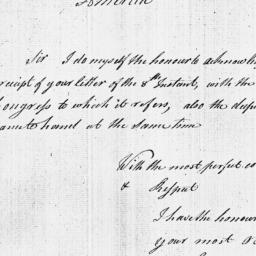 Sir I do myself the honour to acknowl
receipt of your letter of the 8th Instant, with the
ongress to which it refers, also the dup
ame to hand at the same time
With the most perfect co
& Respect
I have the honour
your most O